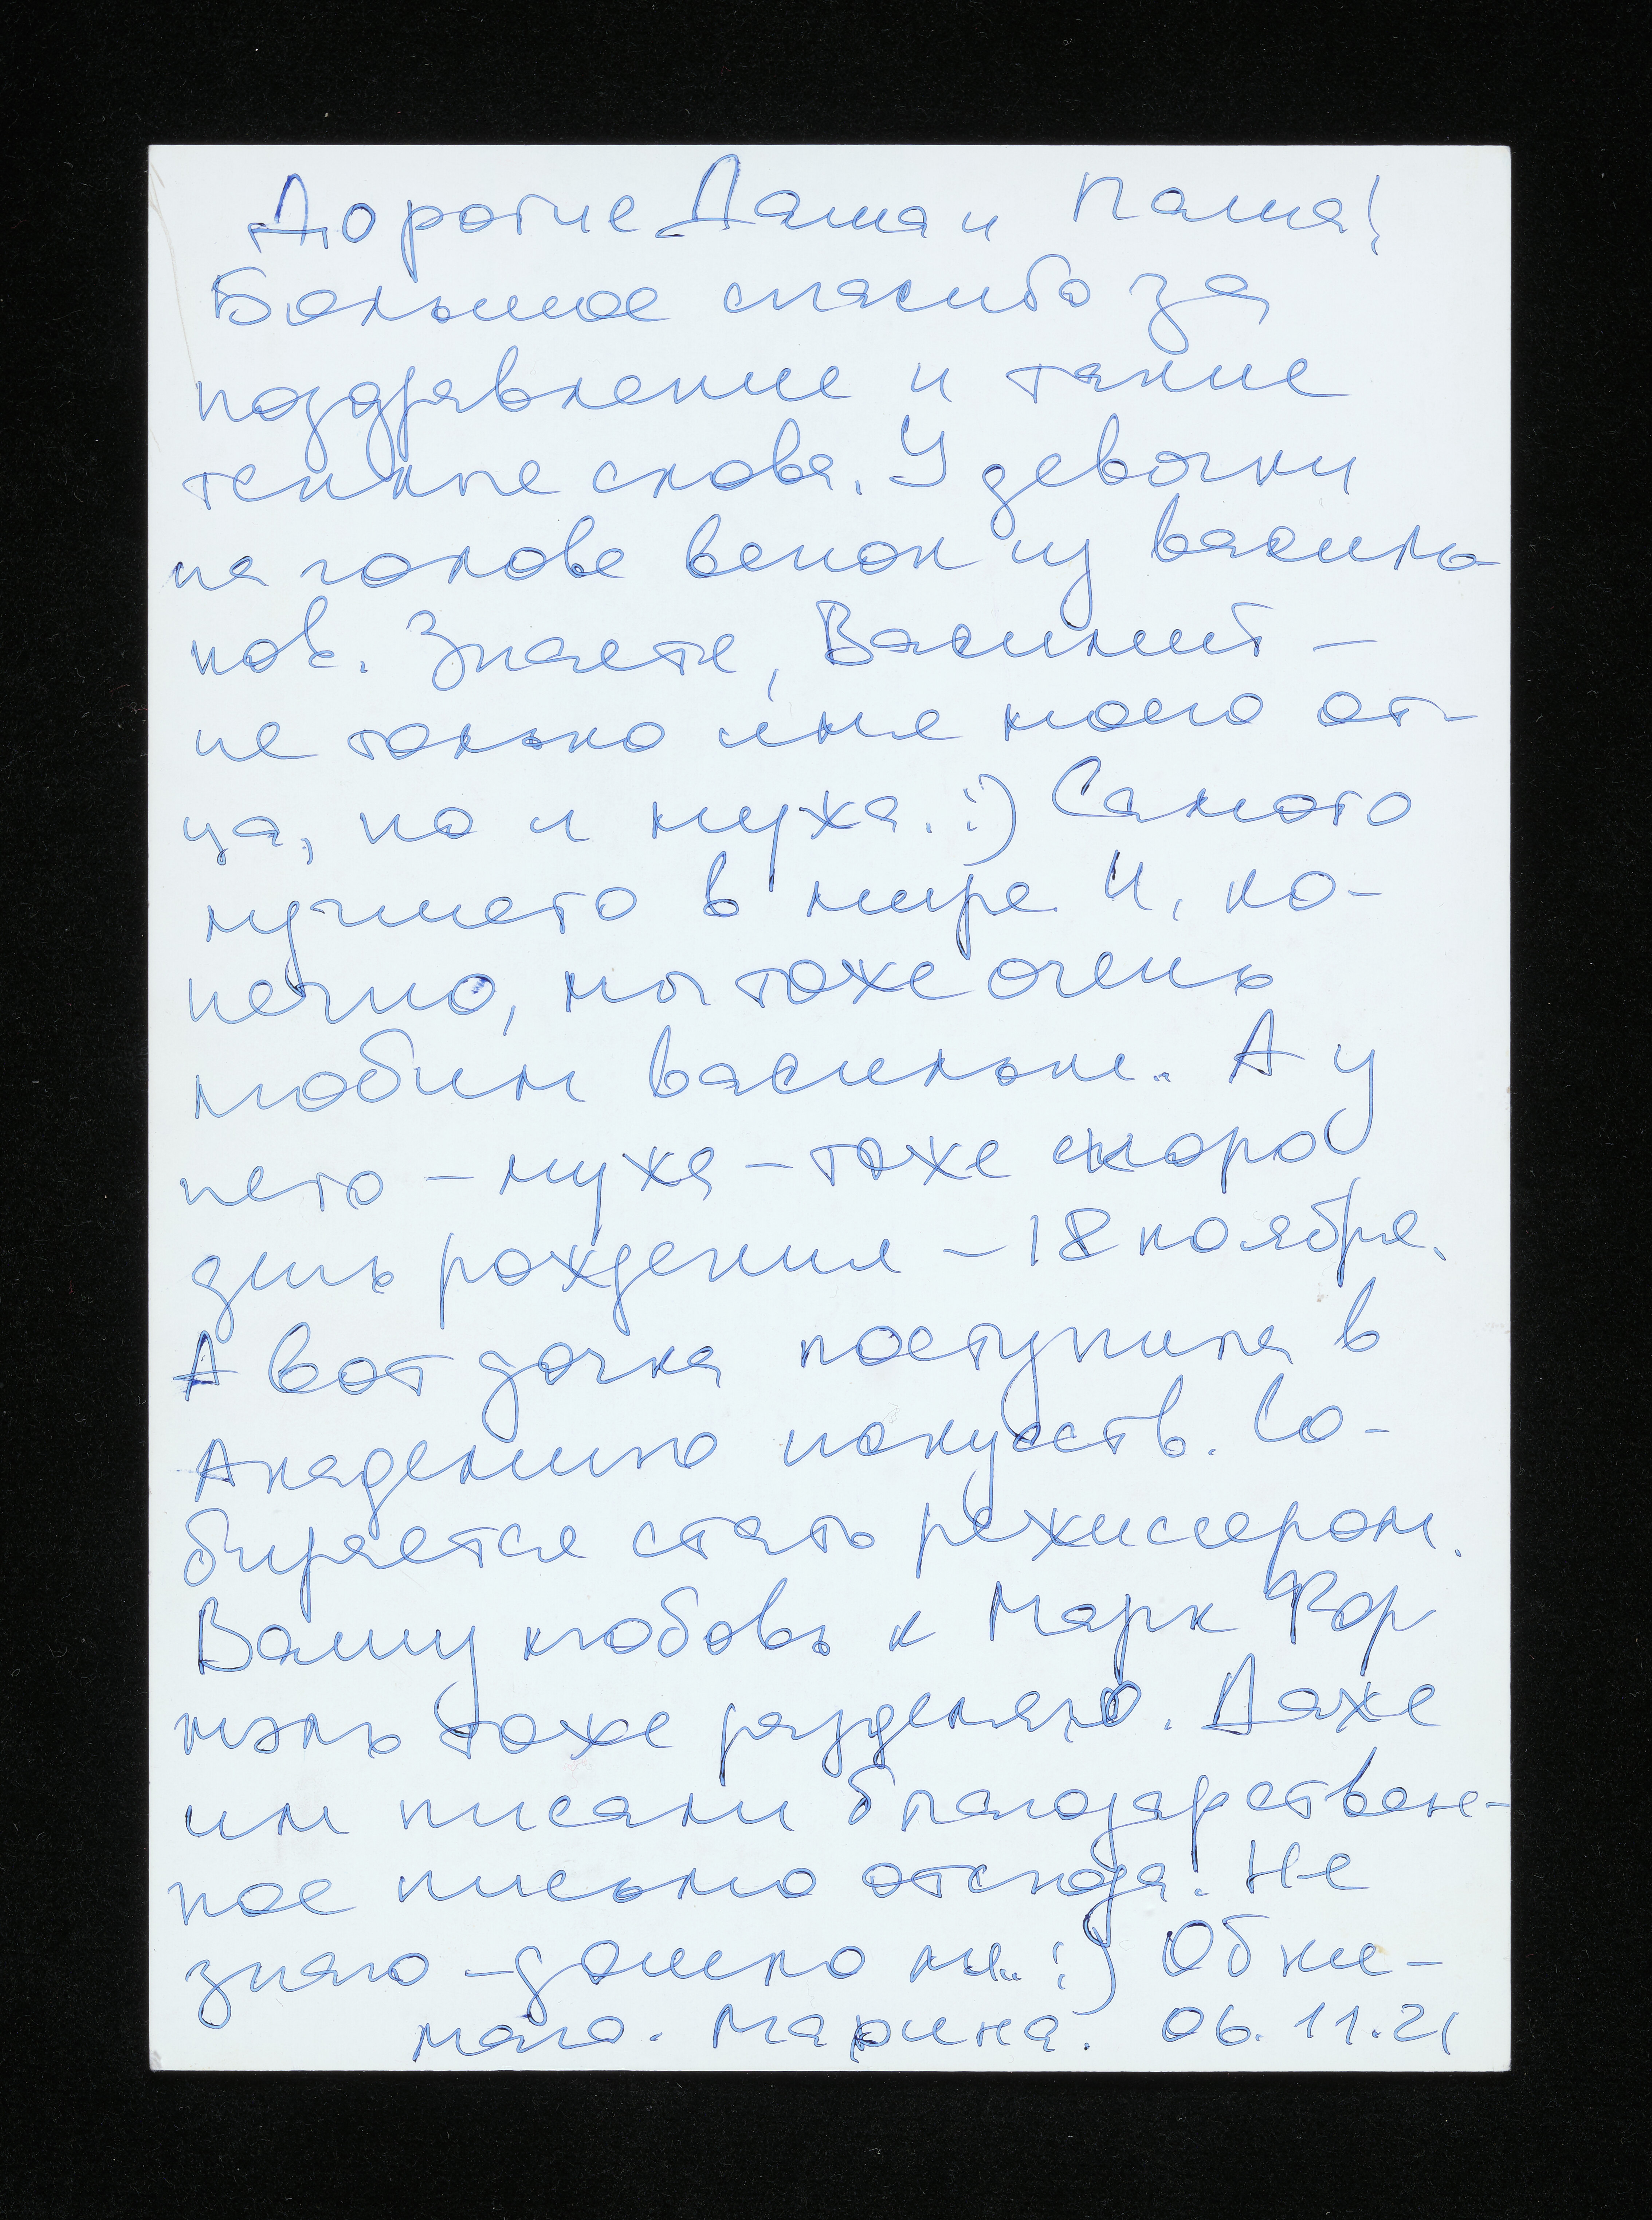 Дорогие Даша и Паша!
Большое спасибо за
поздравление и такие
теплые слова. У девочки
на голове венок из василь-
ков. Знаете, Василий –
не только имя моего от-
ца, но и мужа. :) Самого
лучшего в мире. И, ко-
нечно, мы тоже очень
любим васильки.. А у
него – мужа – тоже скоро
день рождения – 18 ноября.
А вот дочка поступила в
Академию искусств. Со-
бирается стать режиссером.
Вашу любовь к Марк Фор
мэль тоже разделяю. Даже
им писали благодарствен-
ное письмо отсюда! Не
знаю – дошло ли.. :) Обни-
маю. Марина. 06.11.21